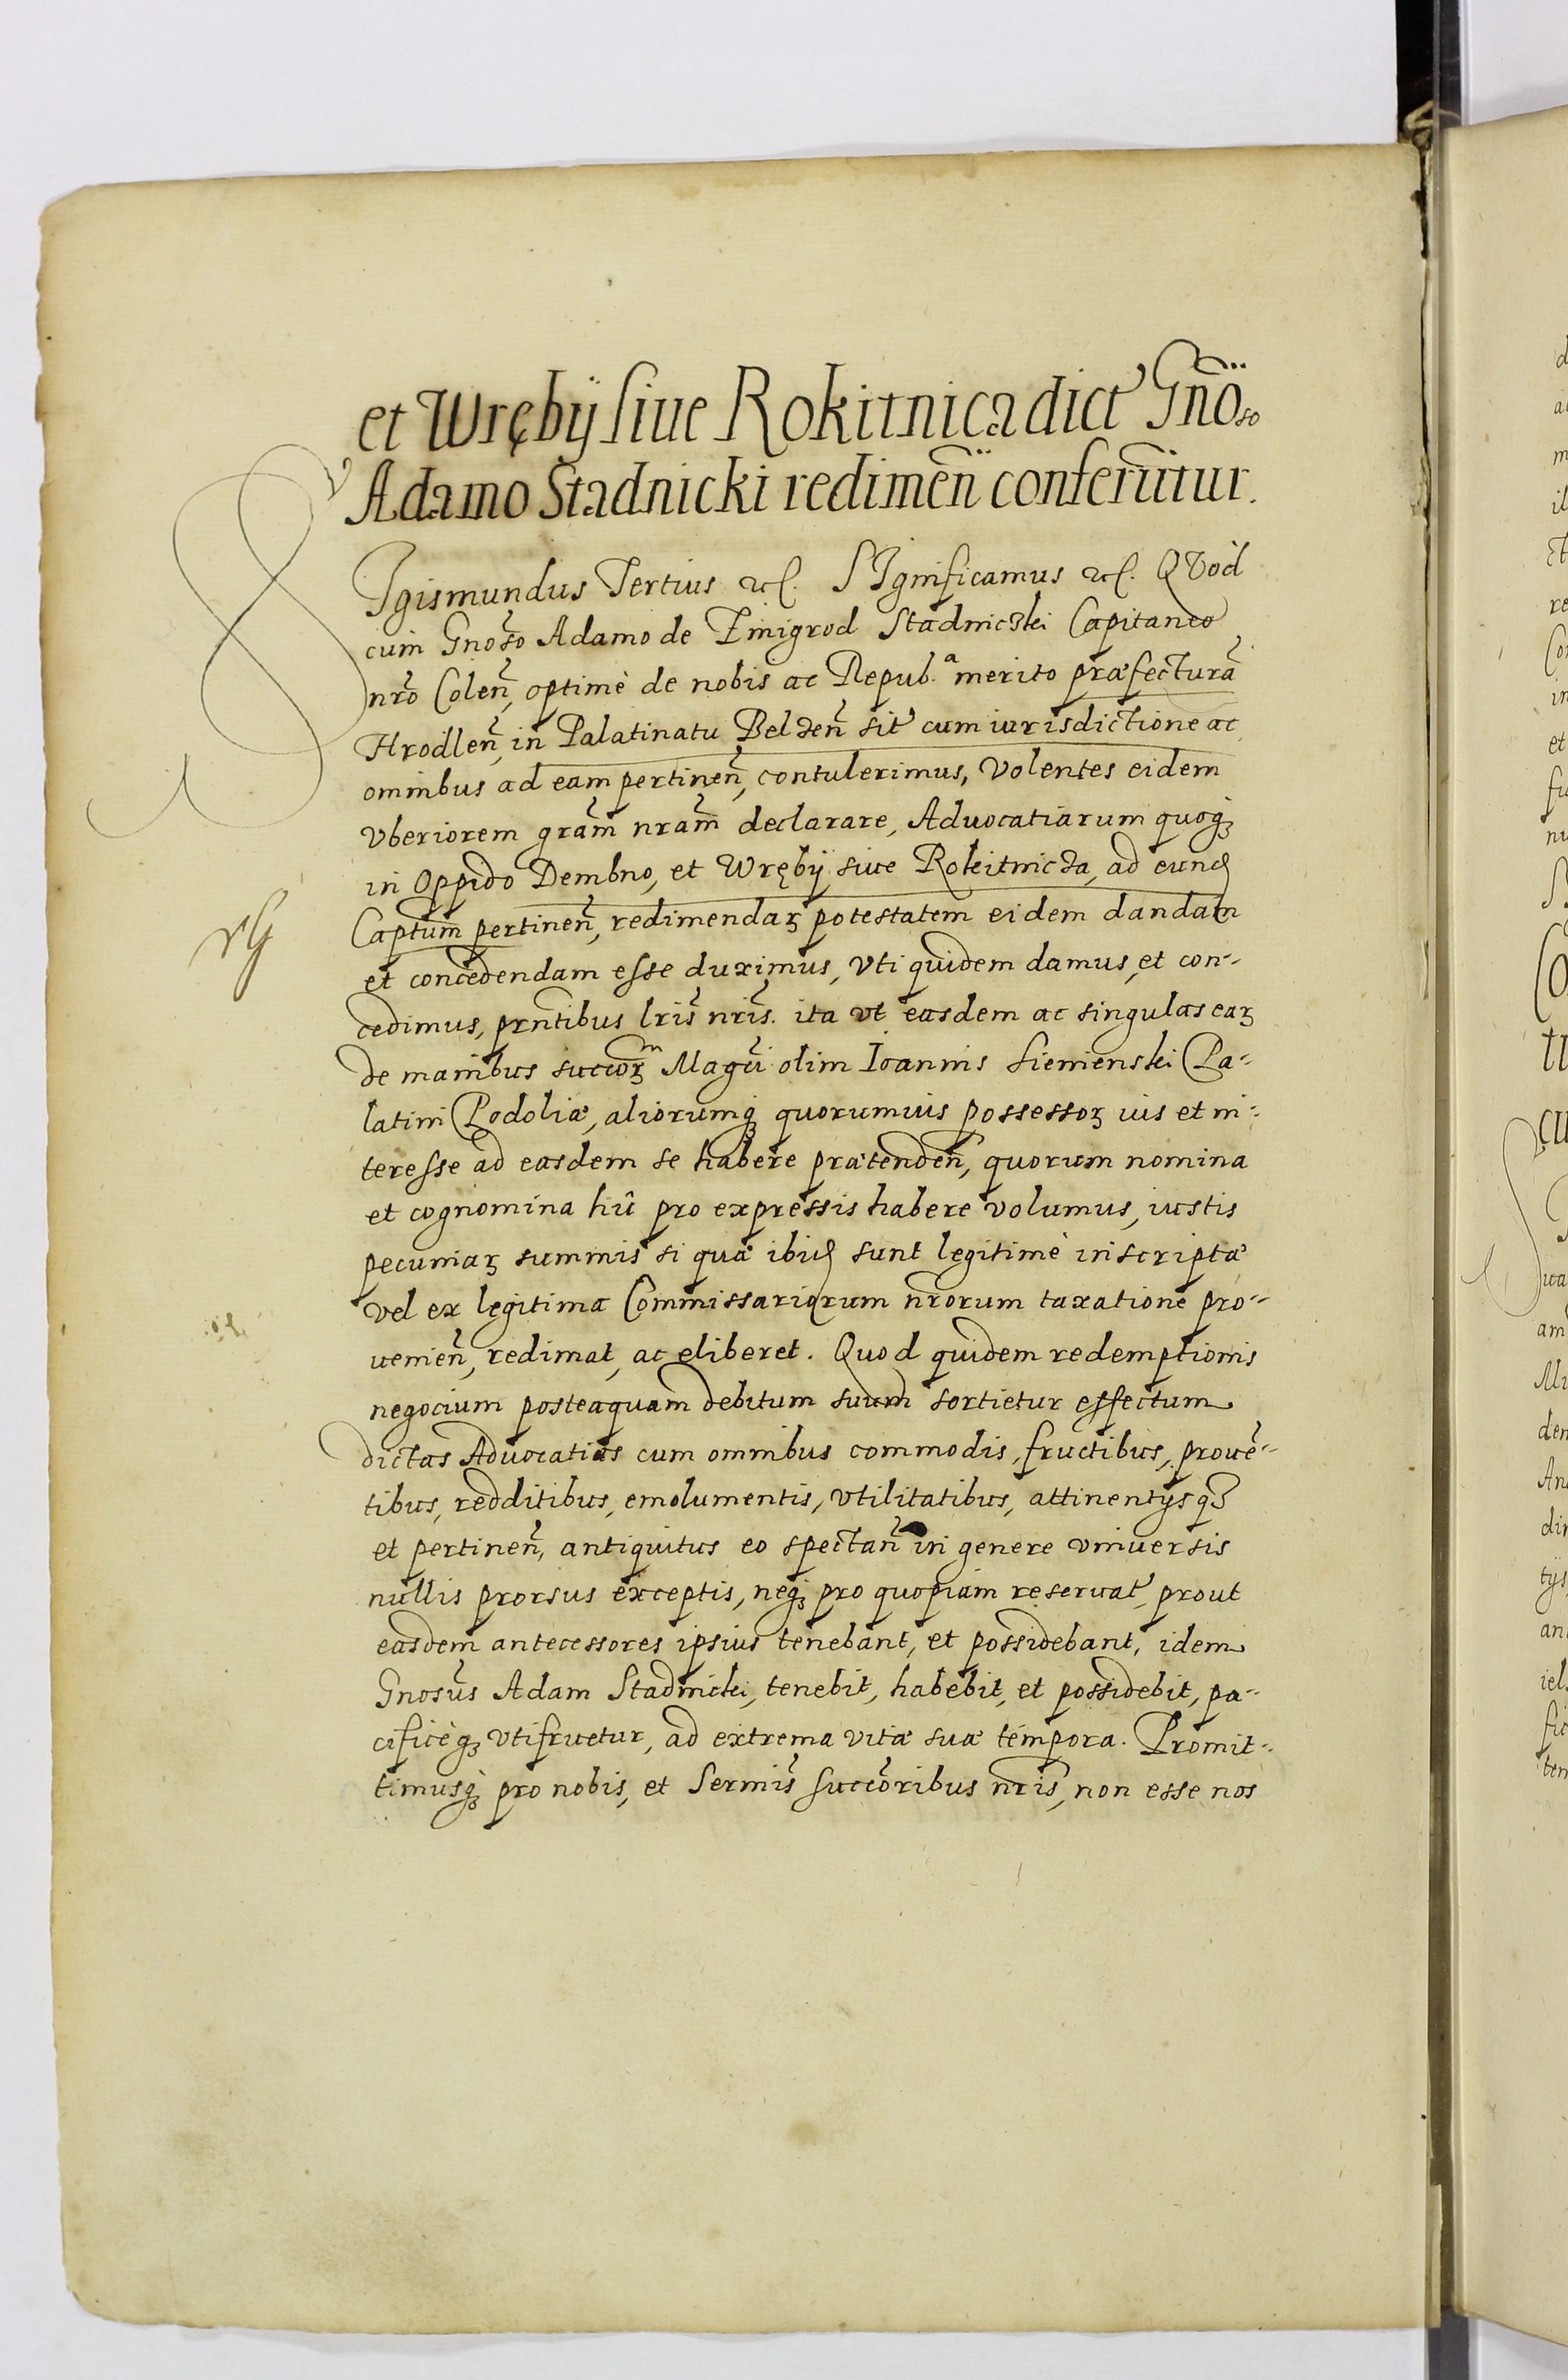 et Wręby siue Rokitnica dict Gnõso
Adamo Stadnicki redimeñ conferũtur.
SIgismundus Tertius etc. SIgnificamus etc. QVod
cum Gnoso Adamo de Zmigrod Stadniczki Capitaneo
nro Coleñ, optimè de nobis ac Repub.ª merito præfecturã
Hrodleñ, in Palatinatu Belzeñ sit cum iurisdictione ac
omnibus ad eam pertineñ, contulerimus, Volentes eidem
vberiorem gram̃ nram̃ declarare, Aduocatiarum quoqꝫ
in Oppido Dembno, et Wręby siue Rokitnicza, ad eund
Captum̃ pertineñ, redimendaꝝ potestatem eidem dandam
et concedendam esse duximus, Vti quidem damus, et con-
cedimus, prñtibus lris̃ nris̃. ita vt easdem ac singulas eaꝝ
de manibus succoꝝ Magci olim Ioannis Sienienski Pa-
latini Podoliæ, aliorumqꝫ quorumuis possessoꝝ ius et in-
teresse ad easdem se habere prætendeñ, quorum nomina
et cognomina hîc pro expressis habere volumus, iustis
pecuniaꝝ summis si quæ ibid sunt legitimè inscriptæ
vel ex legitima Commissariorum nrorum taxatione pro-
uenieñ, redimat, ac eliberet. Quod quidem redemptionis
negocium posteaquam debitum suum sortietur effectum
dictas Aduocatias cum omnibus commodis, fructibus, prouẽ-
tibus, redditibus, emolumentis, vtilitatibus, attinentijsqꝫ
et pertineñ, antiquitus eo spectañ in genere vniuersis
nullis prorsus exceptis, neqꝫ pro quopiam reseruat, prout
easdem antecessores ipsius tenebant, et possidebant, idem
Gnosus Adam Stadnicki, tenebit, habebit, et possidebit, pa-
cificèqꝫ vtifruetur, ad extrema vitæ suæ tempora. Promit-
timusqꝫ pro nobis, et Sermis̃ succoribus nris̃, non esse nos